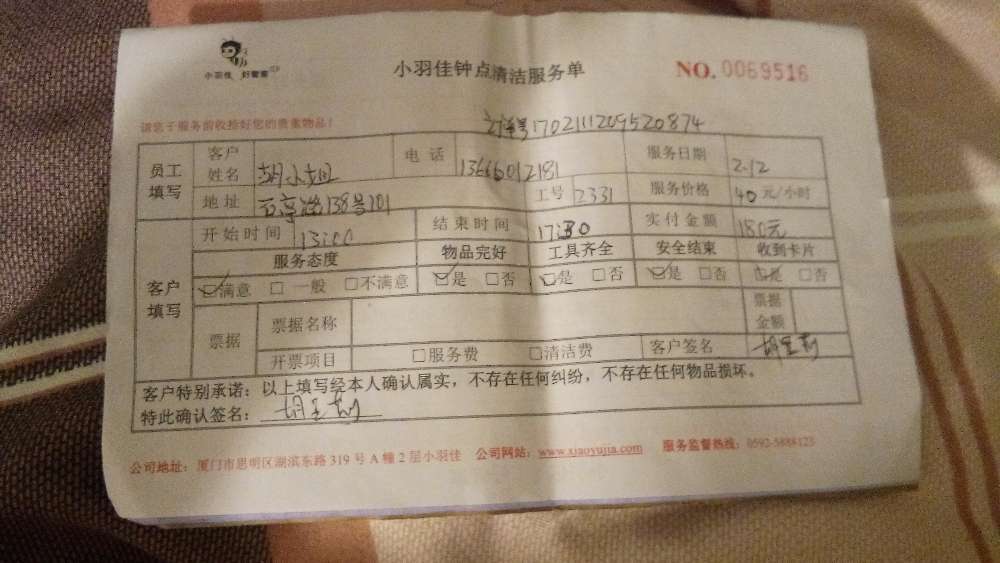 小羽佳 好管家
小羽佳钟点清洁服务单
NO. 0069516
请您于服务前收拾好您的贵重物品!
订单号170211120952 0874
员工填写 客户姓名 胡小姐 电话 13666012181 服务日期 2.12
地址 138号101 工号 2331 服务价格 40元/小时
开始时间 13:00 结束时间 17:30 实付金额 180元
客户填写 服务态度 物品完好 工具齐全 安全结束 收到卡片
☑满意 □一般 □不满意 ☑是 □否 ☑是 □否 ☑是 □否 ☑是 □否
票据 票据名称 票据金额
开票项目 □服务费 □清洁费 客户签名
客户特别承诺:以上填写经本人确认属实,不存在任何纠纷,不存在任何物品损坏。
特此确认签名:
公司地址:厦门市思明区湖滨东路 319 号 A 幢 2 层小羽佳 公司网站:www.xiaoyujia.com 服务监督热线:0592-5888123